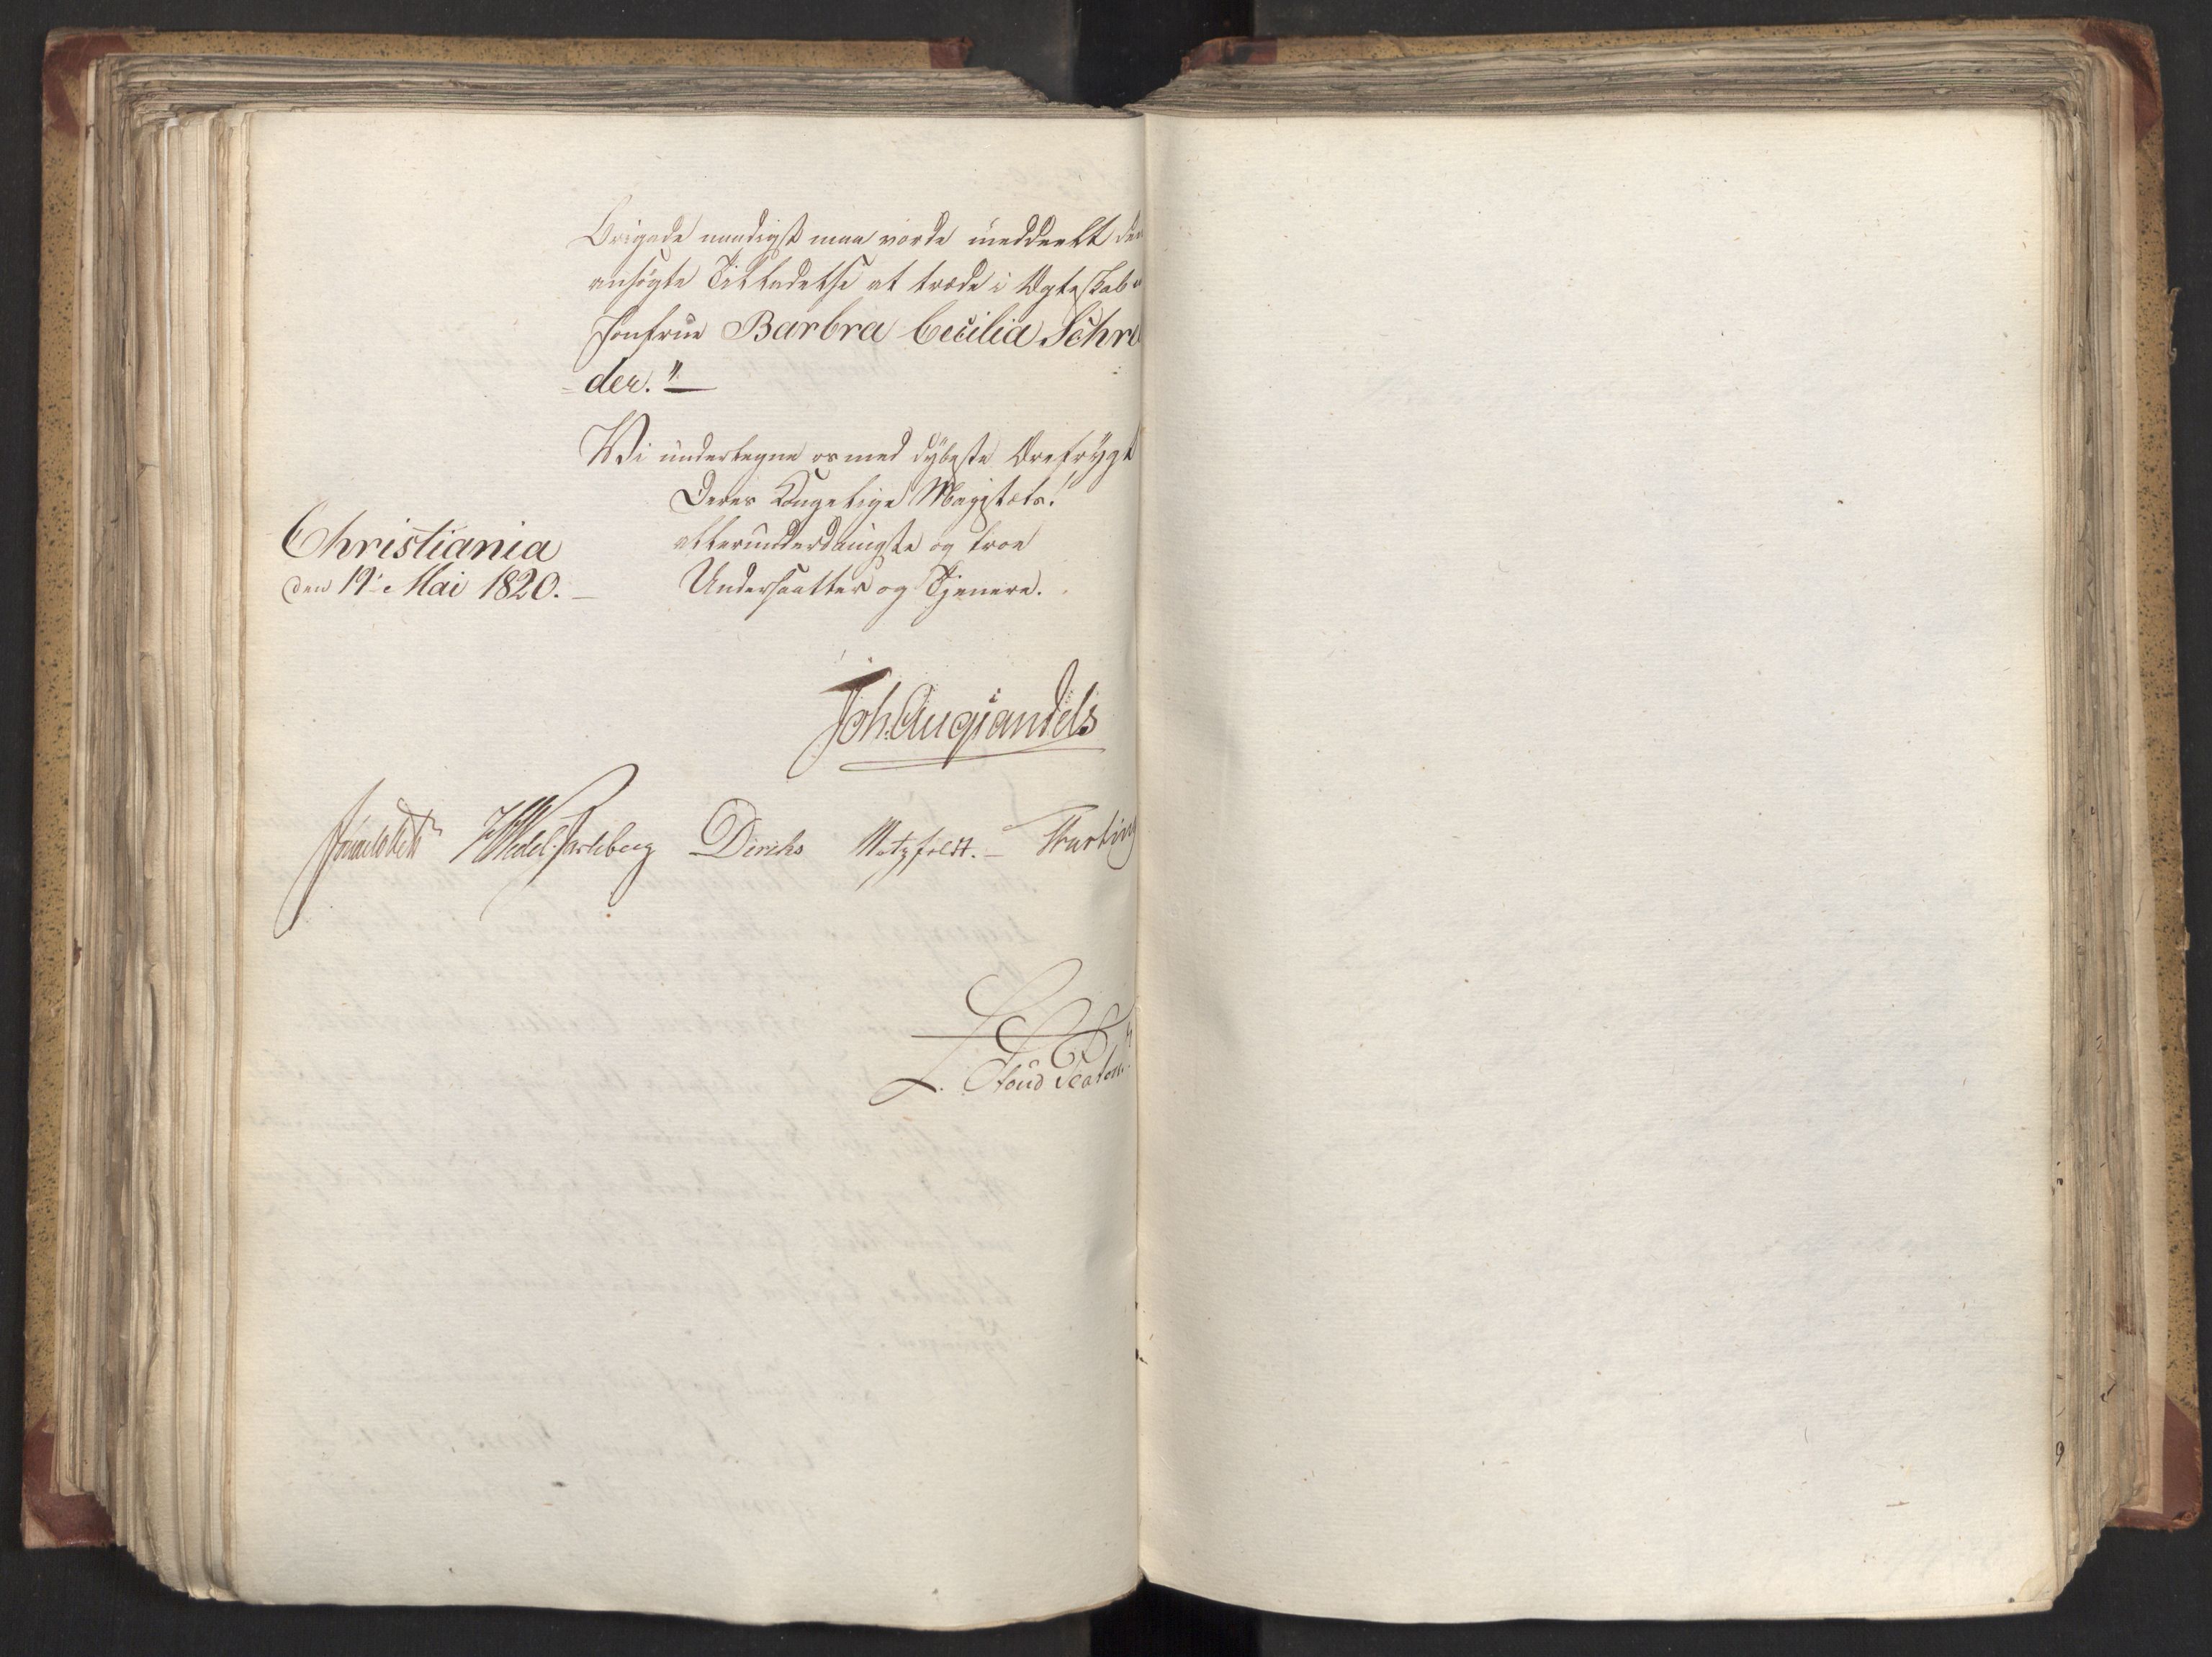 Brigade naadigst maa vorde meddeelt den
ansøgte Tilladelse at træde i Ægteskab
Jomfrue Barbra Cecilia Schrø
- der."
Vi undertegne os med dybeste Ærefrygt
Deres Kongelige Majestæts!
allerunderdanigste og troe
Undersaatter og Tjenere.
Christiania
den 19 Mai 1820.
Joh. Aug Sandels
HWedel-Jarlsberg Diriks Motzfeldt. Thurlin
L. Stoud Platou